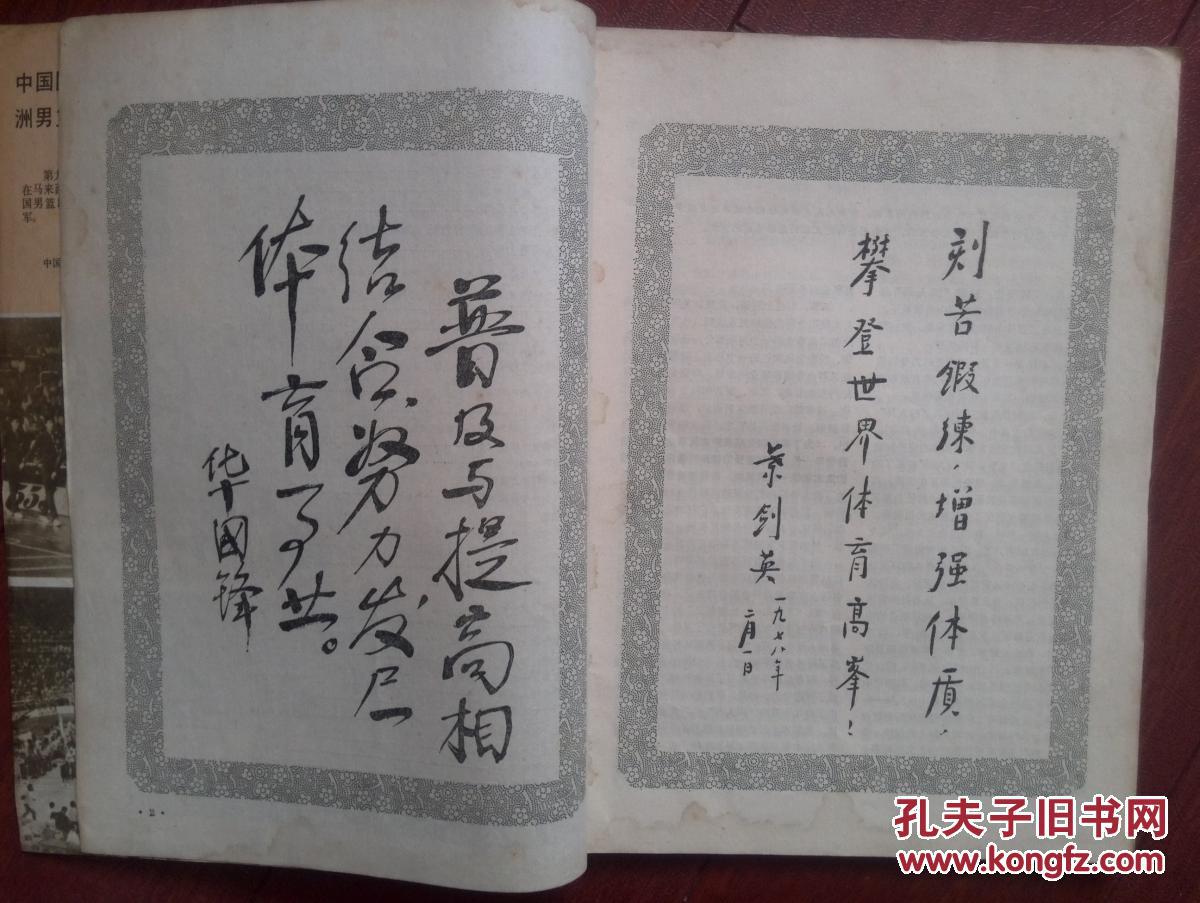 中国
洲男
第
在马来
国男篮
军。
中国
普及与提高相
结合，努力发展
体育事业。
华国锋
· 2 ·
刻苦锻練，增强体质，
攀登世界体育高峰！
葉剑英
一九七八年
二月一日
孔夫子旧书网
www.kongfz.com